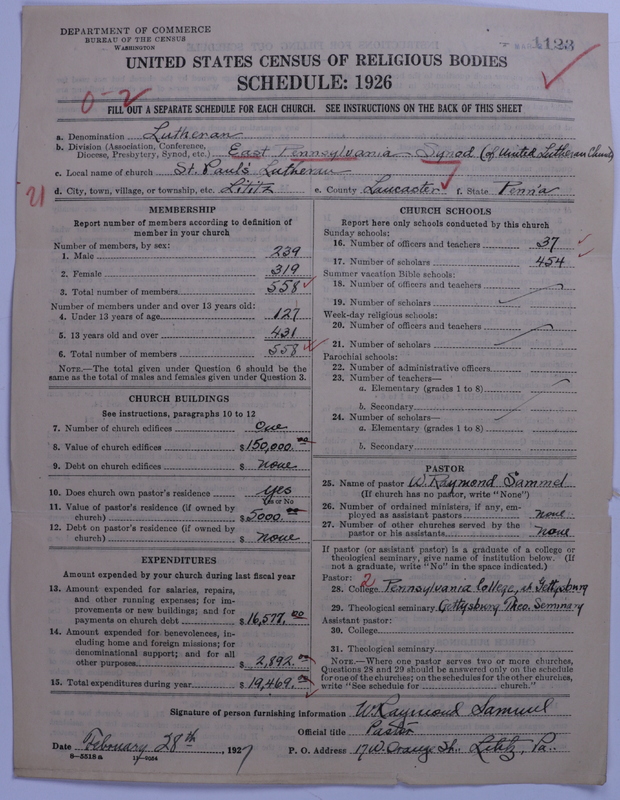 DEPARTMENT OF COMMERCE
BUREAU OF THE CENSUS
WASHINGTON
1123
UNITED STATES CENSUS OF RELIGIOUS BODIES
SCHEDULE: 1926
0-2
FILL OUT A SEPARATE SCHEDULE FOR EACH CHURCH. SEE INSTRUCTIONS ON THE BACK OF THIS SHEET
a. Denomination Lutheran
b. Division (Association, Conference, Diocese, Presbytery, Synod, etc.) East Pennsylvania Synod (of United Lutheran Church)
c. Local name of church St. Paul's Lutheran
21
d. City, town, village, or township, etc. Lititz e. County Lancaster f. State Penn'a
MEMBERSHIP
Report number of members according to definition of
member in your church
Number of members, by sex:
1. Male 239
2. Female 319
3. Total number of members 558
Number of members under and over 13 years old:
4. Under 13 years of age 127
5. 13 years old and over 431
6. Total number of members 558
NOTE.—The total given under Question 6 should be
same as the total of males and females given under Question 3.
CHURCH BUILDINGS
See instructions, paragraphs 10 to 12
7. Number of church edifices One
8. Value of church edifices $150,000.00
9. Debt on church edifices $ None
10. Does church own pastor's residence Yes
(Yes or No
11. Value of pastor's residence (if owned by
church) $5000.00
12. Debt on pastor's residence (if owned by
church) $ None
EXPENDITURES
Amount expended by your church during last fiscal year
13. Amount expended for salaries, repairs,
and other running expenses; for im-
provements or new buildings; and for
payments on church debt $16,577.00
14. Amount expended for benevolences, in-
cluding home and foreign missions; for
denominational support; and for all
other purposes $2,892.00
15. Total expenditures during year $19,469.00
CHURCH SCHOOLS
Report here only schools conducted by this church
Sunday schools:
16. Number of officers and teachers 37
17. Number of scholars 454
Summer vacation Bible schools:
18. Number of officers and teachers
19. Number of scholars
Week-day religious schools:
20. Number of officers and teachers
21. Number of scholars
Parochial schools:
22. Number of administrative officers
23. Number of teachers—
a. Elementary (grades 1 to 8)
b. Secondary
24. Number of scholars—
a. Elementary (grades 1 to 8)
b. Secondary
PASTOR
25. Name of pastor W. Raymond Sammel
(If church has no pastor, write "None")
26. Number of ordained ministers, if any, em-
ployed as assistant pastors none
27. Number of other churches served by the
pastor or his assistants none
If pastor (or assistant pastor) is a graduate of a college or
theological seminary, give name of institution below. (If
not a graduate, write "No" in the space indicated.)
Pastor: 2
28. College Pennsylvania College, at Gettysburg
29. Theological seminary Gettysburg Theo. Seminary
Assistant pastor:
30. College
31. Theological seminary
NOTE.—Where one pastor serves two or more churches,
Questions 28 and 29 should be answered only on the schedule
for one of the churches; on the schedules for the other churches,
write "See schedule for church."
Signature of person furnishing information W. Raymond Sammel
Official title Pastor
Date February 28th, 1927 P. O. Address 17 W. Orange St. Lititz, Pa.
8-5518 a 11-9054